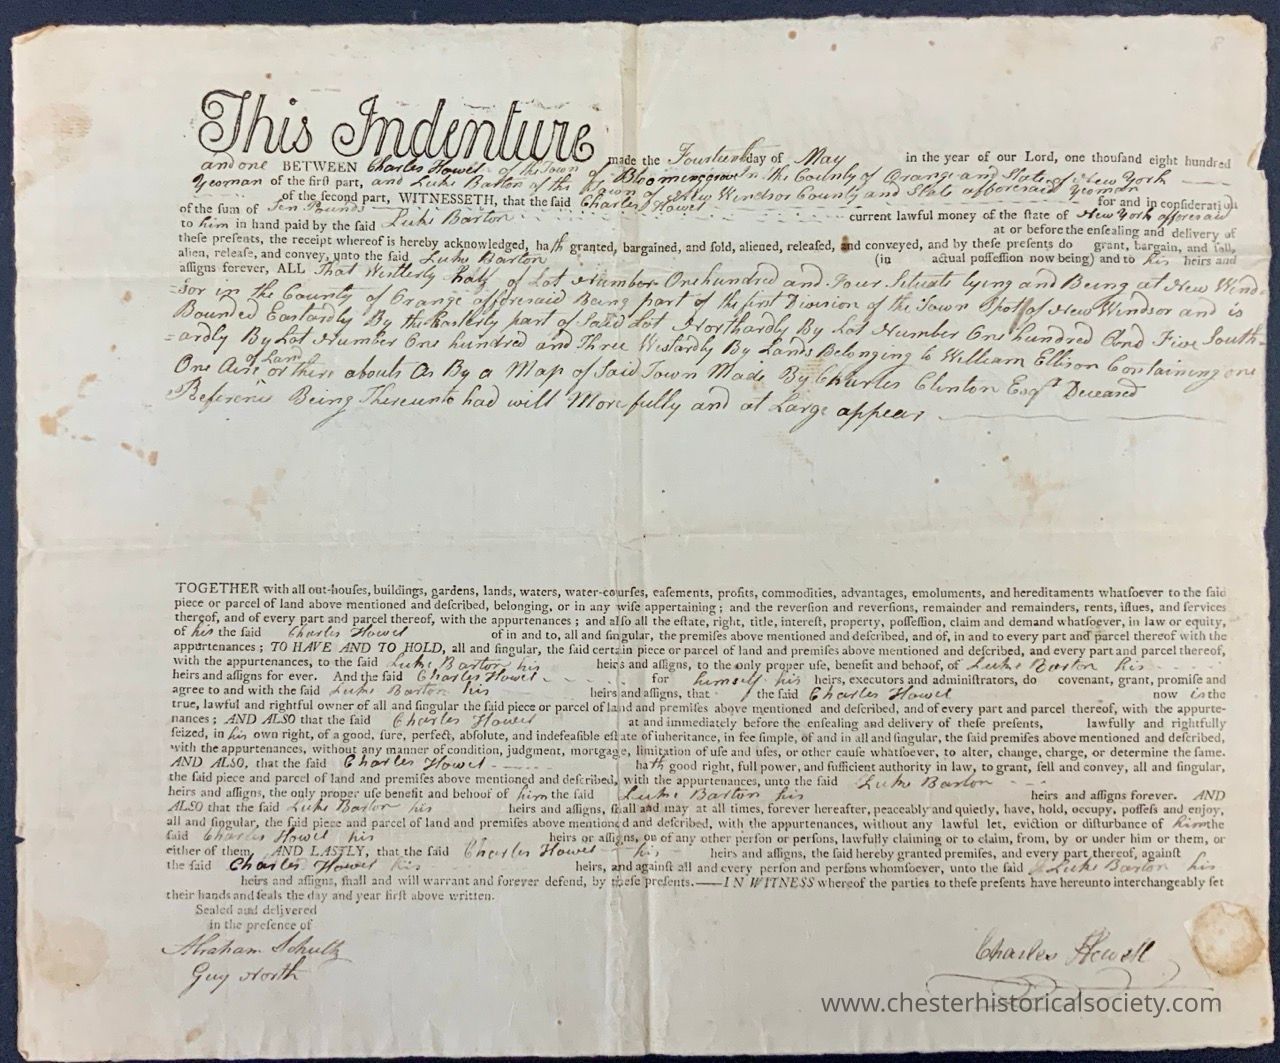 This Indenture made the Fourteenth day of May in the year of our Lord, one thousand eight hundred
and one BETWEEN Charles Howel of the Town of Bloomingrove In the County of Orange and State of New York
Yeoman of the first part, and Luke Barton of the Town of New Windsor County and State afforesaid Yeoman
of the second part, WITNESSETH, that the said Charles Howel for and in consideration
of the sum of Ten Pounds current lawful money of the state of New York afforesaid
to him in hand paid by the said Luke Barton at or before the ensealing and delivery of
these presents, the receipt whereof is hereby acknowledged, hath granted, bargained, and sold, aliened, released, and conveyed, and by these presents do grant, bargain, and sell,
alien, release, and convey, unto the said Luke Barton (in actual possession now being) and to his heirs and
assigns forever, ALL That Westerly half of Lot Number One hundred and Four Situate lying and Being at New Wind-
=sor in the County of Orange afforesaid Being part of the first Division of the Town Spot of New Windsor and is
Bounded Eastardly By the Easterly part of Said Lot Northardly By Lot Number One hundred And Five South-
=ardly By Lot Number One hundred and Three Westardly By Lands Belonging to William Ellison Containing one
One Acre of Land or there abouts As By a Map of Said Town Made By Charles Clinton Esqr Deceased
Reference Being Thereunto had will More fully and at Large appear
TOGETHER with all out-houses, buildings, gardens, lands, waters, water-courses, easements, profits, commodities, advantages, emoluments, and hereditaments whatsoever to the said
piece or parcel of land above mentioned and described, belonging, or in any wise appertaining; and the reversion and reversions, remainder and remainders, rents, issues, and services
thereof, and of every part and parcel thereof, with the appurtenances; and also all the estate, right, title, interest, property, possession, claim and demand whatsoever, in law or equity,
of his the said Charles Howel of in and to, all and singular, the premises above mentioned and described, and of, in and to every part and parcel thereof with the
appurtenances; TO HAVE AND TO HOLD, all and singular, the said certain piece or parcel of land and premises above mentioned and described, and every part and parcel thereof,
with the appurtenances, to the said Luke Barton his heirs and assigns, to the only proper use, benefit and behoof, of Luke Barton his
heirs and assigns for ever. And the said Charles Howel for himself his heirs, executors and administrators, do covenant, grant, promise and
agree to and with the said Luke Barton his heirs and assigns, that the said Charles Howel now is the
true, lawful and rightful owner of all and singular the said piece or parcel of land and premises above mentioned and described, and of every part and parcel thereof, with the appurte-
nances; AND ALSO that the said Charles Howel at and immediately before the ensealing and delivery of these presents, lawfully and rightfully
seized, in his own right, of a good, sure, perfect, absolute, and indefeasible estate of inheritance, in fee simple, of and in all and singular, the said premises above mentioned and described,
with the appurtenances, without any manner of condition, judgment, mortgage, limitation of use and uses, or other cause whatsoever, to alter, change, charge, or determine the same.
AND ALSO, that the said Charles Howel hath good right, full power, and sufficient authority in law, to grant, sell and convey, all and singular,
the said piece and parcel of land and premises above mentioned and described, with the appurtenances, unto the said Luke Barton
heirs and assigns, the only proper use benefit and behoof of him the said Luke Barton his heirs and assigns forever. AND
ALSO that the said Luke Barton his heirs and assigns, shall and may at all times, forever hereafter, peaceably and quietly, have, hold, occupy, possess and enjoy,
all and singular, the said piece and parcel of land and premises above mentioned and described, with the appurtenances, without any lawful let, eviction or disturbance of him the
said Charles Howel his heirs or assigns, or of any other person or persons, lawfully claiming or to claim, from, by or under him or them, or
either of them, AND LASTLY, that the said Charles Howel his heirs and assigns, the said hereby granted premises, and every part thereof, against
the said Charles Howel his heirs, and against all and every person and persons whomsoever, unto the said Luke Barton his
heirs and assigns, shall and will warrant and forever defend, by these presents.—IN WITNESS whereof the parties to these presents have hereunto interchangeably set
their hands and seals the day and year first above written.
Sealed and delivered
in the presence of
Abraham Schultz
Guy North
Charles Howell
www.chesterhistoricalsociety.com